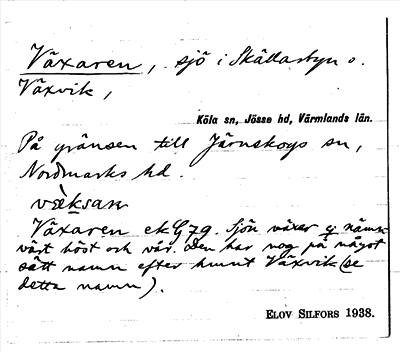 Växaren, sjö i Skällarbyn o.
Växvik,
Köla sn, Jösse hd, Värmlands län.
På gränsen till Järnskogs sn,
Nordmarks hd.
Växaren ek G 7g. Sjön växer ej nämn-
värt höst och vår. Den har nog på något
sätt namn efter hmnt Växvik (se
detta namn).
ELOV SILFORS 1938.